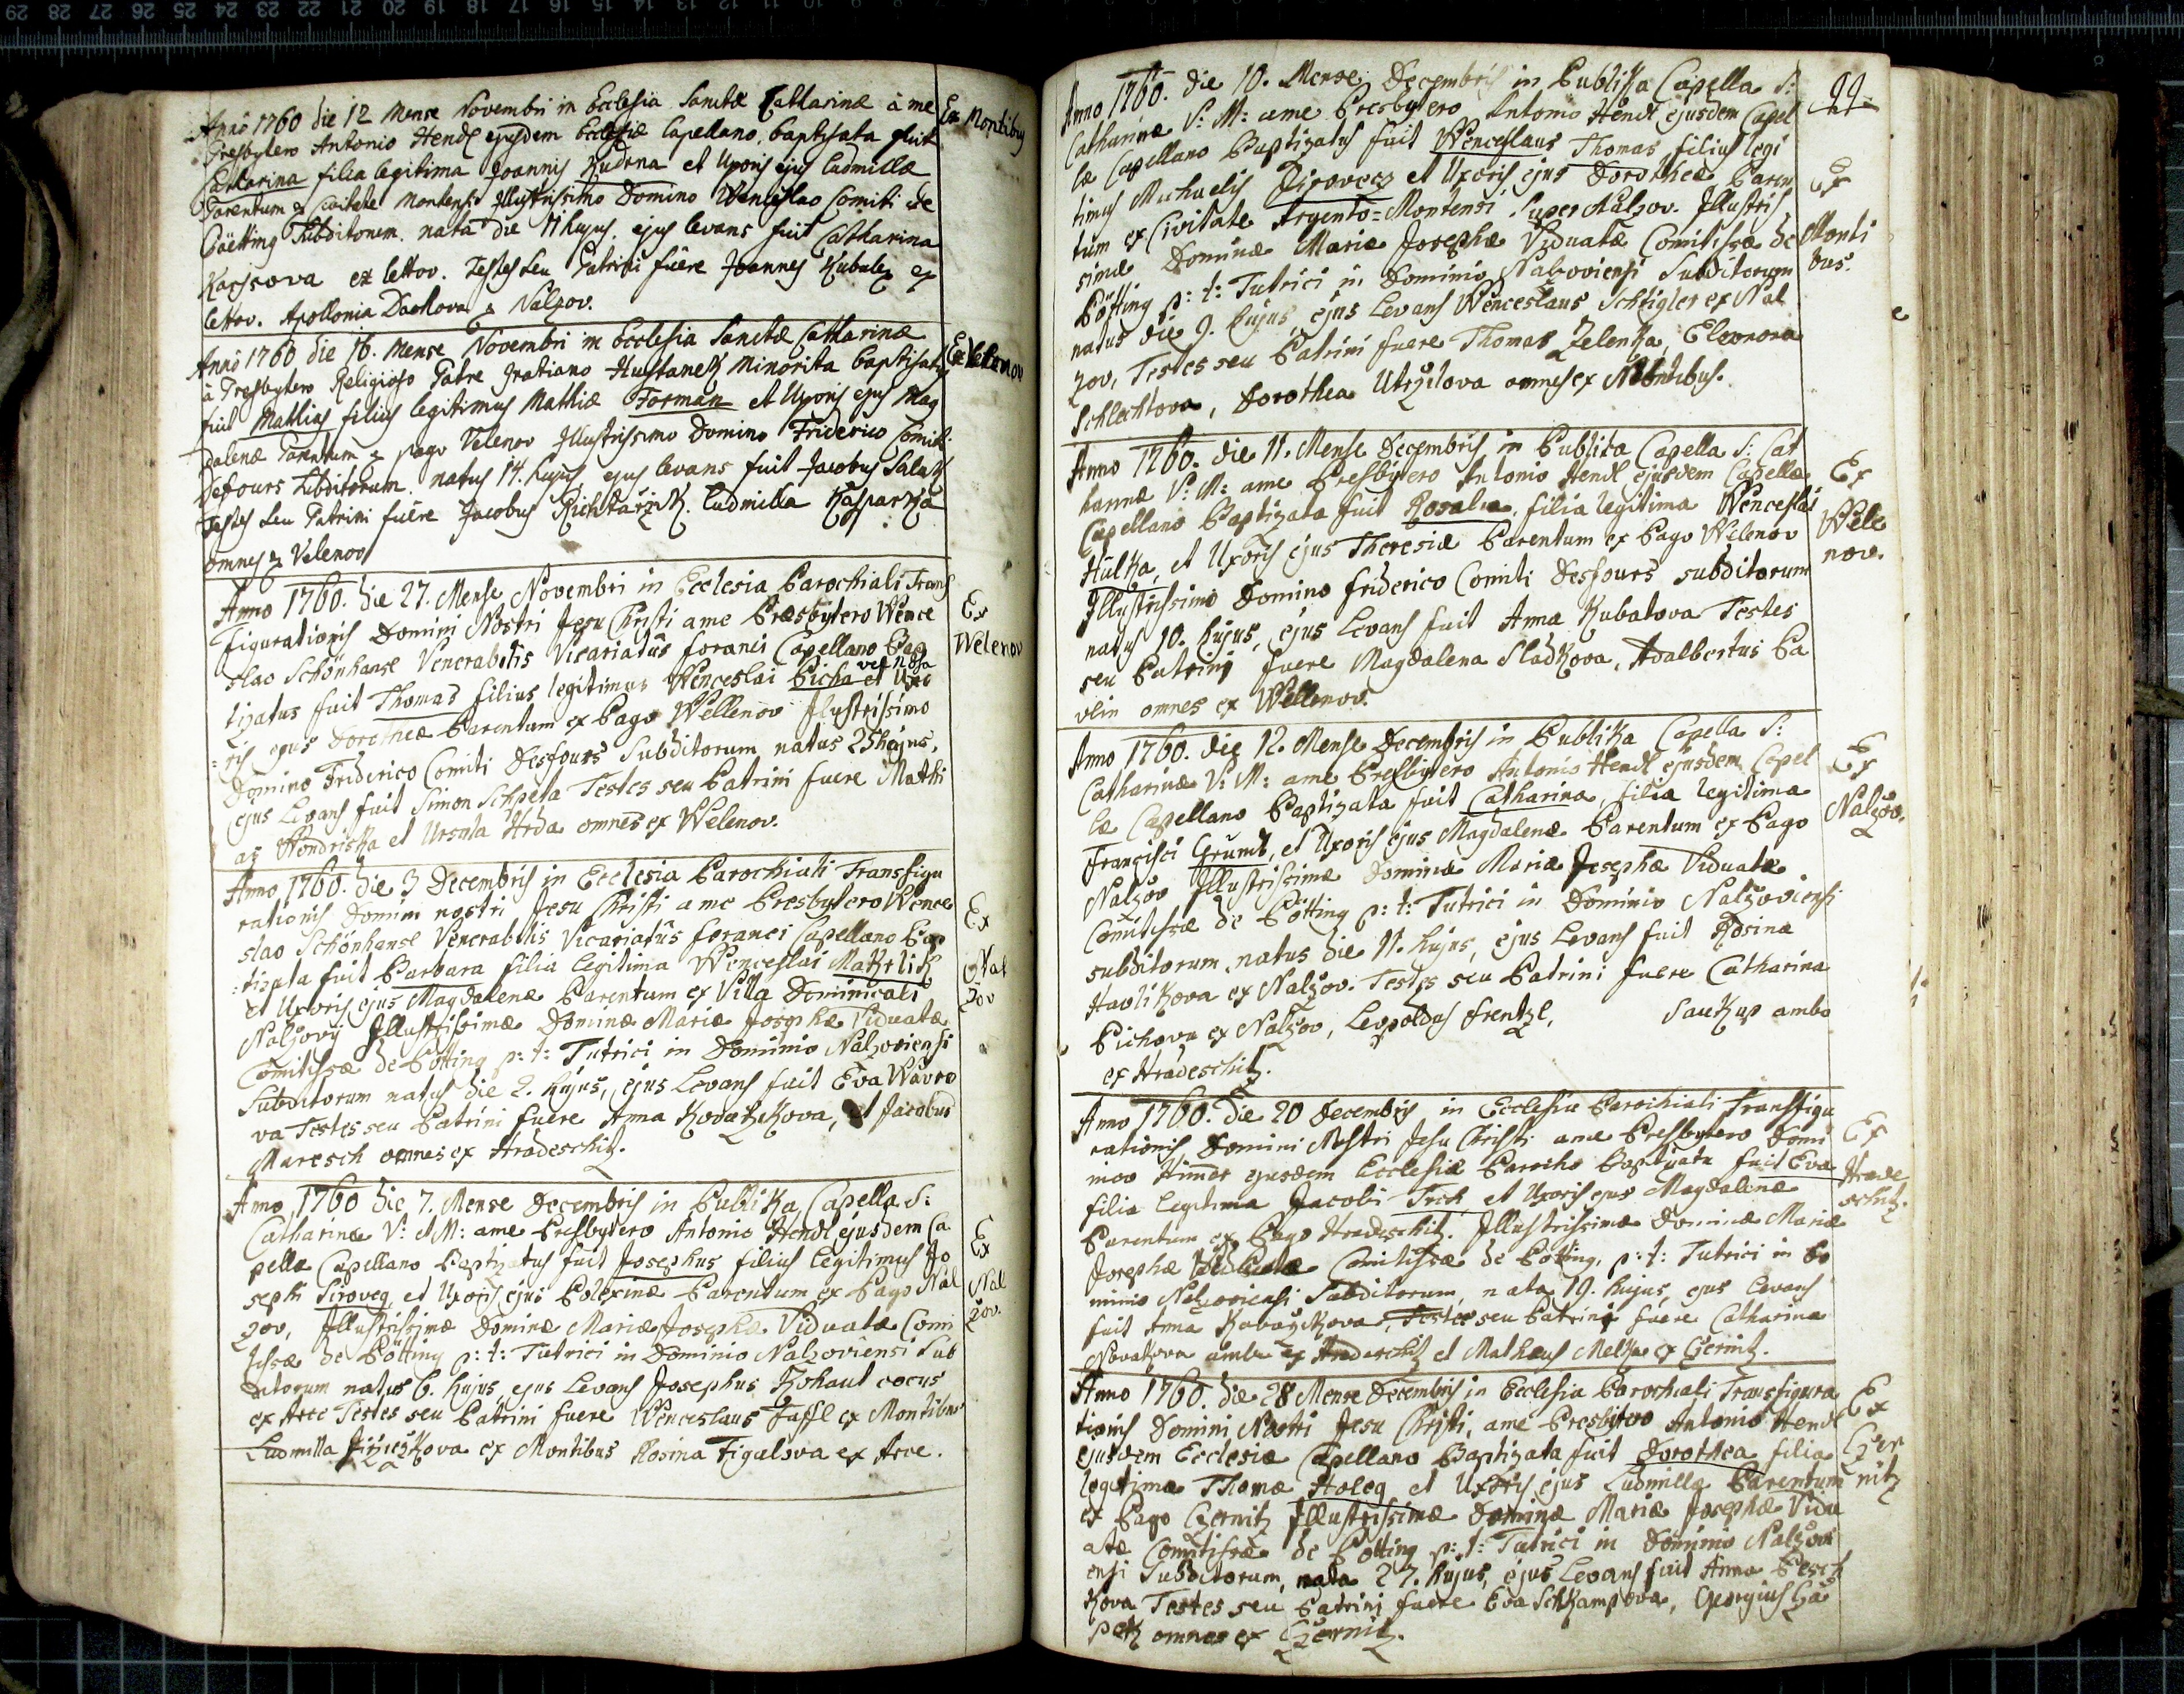 Anno 1760 die 12 Mense Novembri in Ecclesia Sanctæ Catharinæ à me
Ex Montibus
Presbytero Antonio Hendl ejusdem Ecclesiæ Capellano, baptisata fuit
Catharina filia legitima Joannis Kudrna et Uxoris ejus Ludmillæ
Parentum ex Civitate Montensi Illustrissimo Domino Wenceslao Comiti de
Pöetting Subditorum. nata die 11 hujus. ejus levans fuit Catharina
ex lettov. Testes seu Patrini fuere Joannes Kubalex ex
lettov. Apollonia Dachova ex Nalzov.
Anno 1760 die 16. Mense Novembri in Ecclesia Sanctæ Catharinæ
Ex Velenov
à Presbytero Religioso Patre Gratiano Hustanek Minorita baptisatus
fuit Mathias filius legitimus Mathiæ Forman et Uxoris ejus Mag
dalenæ Parentum ex pago Velenov Illustrissimo Domino Friderico Comiti
Defours Subditorum. natus 14. hujus, ejus levans fuit Jacobus Salak
Testes seu Patrini fuere Jacobus Richtarzik. Ludmilla Kasparka
omnes ex Velenov
Anno 1760. die 27. Mense Novembri in Ecclesia Parochiali Trans
Ex
Welenov
figurationis Domini Nostri Jesu Christi a me Præsbytero Wence
slao Schönhansl Venerabilis Vicariatûs foranei Capellano Bap
tizatus fuit Thomas filius legitimus Wenceslai Picha vel Noha et Uxo
ris ejus Dorotheæ Parentum ex Pago Wellenov Illustrissimo
Domino Friderico Comiti Desfours Subditorum natus 25 hujus,
ejus Levans fuit Simon Schpeta Testes seu Patrini fuere Mathi
as Wondriska et Ursula Hrda omnes ex Welenov.
Anno 1760. die 3 Decembris in Ecclesia Parochiali Transfigu
Ex
Nal
zov
rationis Domini nostri Jesu Christi a me Presbytero Wence
slao Schönhansl Venerabilis Vicariatûs foranei Capellano Bap
tizata fuit Barbara filia legitima Wenceslai Matzelik
et Uxoris ejus Magdalenæ Parentum ex Villa Dominicali
Nalzovy Illustrissimæ Dominæ Mariæ Josephæ Viduatæ
Comitissæ de Pötting p: t: Tutrici in Dominio Nalzoviensi
Subditorum natus die 2. hujus, ejus Levans fuit Eva Wavro
va Testes seu Patrini fuere Anna Kovarzkova, et Jacobus
Maresch omnes ex Hradeschitz.
Anno 1760 die 7. Mense Decembris in Publika Capella S:
Ex
Nal
zov.
Catharinæ V: et M: a me Presbytero Antonio Hendl ejusdem Ca
pellæ Capellano Baptizatus fuit Josephus filius legitimus Jo
sephi Siroveg, et Uxoris ejus Polexinæ Parentum ex Pago Nal
zov, Illustrissimæ Dominæ Mariæ Josephæ Viduatæ Comi
tissæ de Pötting p: t: Tutrici in Dominio Nalzoviensi Sub
ditorum natus 6. hujus, ejus Levans Josephus Kohaut cocus
ex Arce Testes seu Patrini fuere Wenceslaus Taffl ex Montibus
Ludmilla ex Montibus Rosina Figulova ex Arce.
Anno 1760. die 10. Mense Decembris in Publika Capella S:
Ex
Monti
bus.
Catharinæ V: M: a me Presbytero Antonio Hendl ejusdem Capel
læ Capellano Baptizatus fuit Wenceslaus Thomas filius legi
timus Michaelis Zirovecz et Uxoris ejus Dorotheæ Paren
tum ex Civitate Argento=Montensi super Nalzov. Illustris
simæ Dominæ Mariæ Josephæ Viduatæ Comitissæ de
Pötting p: t: Tutrici in Dominio Nalzoviensi Subditorum
natus die 9. hujus, ejus Levans Wenceslaus Schtigler ex Nal
zov, Testes seu Patrini fuere Thomas Zelenka, Eleonora
Schlechtova, Dorothea Utrzilova omnes ex Montibus.
Anno 1760. die 11. Mense Decembris in Publica Capella S: Cat
Ex
Wele
nov.
harinæ V: M: a me Presbytero Antonio Hendl ejusdem Capellæ
Capellano Baptizata fuit Rosalia, filia legitima Wenceslai
Hulka, et Uxoris ejus Theresiæ Parentum ex Pago Welenov
Illustrissimo Domino Friderico Comiti Desfours subditorum
natus 10. hujus, ejus Levans fuit Anna Kubatova Testes
seu Patrini fuere Magdalena Sladkova, Adalbertus Pa
vlin omnes ex Wellenov.
Anno 1760. die 12. Mense Decembris in Publika Capella S:
Ex
Nalzov.
Catharinæ V: M: a me Presbytero Antonio Hendl ejusdem Capel
læ Capellano Baptizata fuit Catharina, filia legitima
Francisci Grundt, et Uxoris ejus Magdalenæ Parentum ex Pago
Nalzov Illustrissimæ Dominæ Mariæ Josephæ Viduatæ
Comitissæ de Pötting p: t: Tutrici in Dominio Nalzoviensi
subditorum, natus die 11. hujus, ejus Levans fuit Rosina
Havlikova ex Nalzov. Testes seu Patrini fuere Catharina
Pichova ex Nalzov, Leopoldus Frentzl, Saukup ambo
ex Hradeschitz.
Anno 1760. die 20 Decembris in Ecclesia Parochiali Transfigu
Ex
Hrade
schitz.
rationis Domini Nostri Jesu Christi a me Presbytero Domi
nico Himer ejusdem Ecclesiæ Parocho Baptizata fuit Eva
filia legitima Jacobi Trch et Uxoris ejus Magdalenæ
Parentum ex Pago Hradeschitz. Illustrissimæ Dominæ Mariæ
Josephæ Viduatæ Comitissæ de Pötting, p: t: Tutrici in Do
minio Nalzoviensi Subditorum, nata 19. hujus, ejus Levans
fuit Anna Kovarzkova, Testes seu Patrini fuere Catharina
Novakova ambæ ex Hradeschitz et Mathæus Melka ex Czernitz.
Anno 1760. die 28 Mense Decembris in Ecclesia Parochiali Transfigura
Ex
Czer
nitz
tionis Domini Nostri Jesu Christi, a me Presbitero Antonio Hendl
ejusdem Ecclesiæ Capellano Baptizata fuit Dorothea filia
legitima Thomæ Holeg et Uxoris ejus Ludmilla Parentum
ex Pago Czernitz Illustrissimæ Dominæ Mariæ Josephæ Vidu
atæ Comitissæ de Pötting p: t: Tutrici in Dominio Nalzovi
ensi Subditorum, nata 27. hujus, ejus Levans fuit Anna Pesch
kova Testes seu Patrini fuere Eva Schkampova, Georgius Cza
pek omnes ex Czernitz.